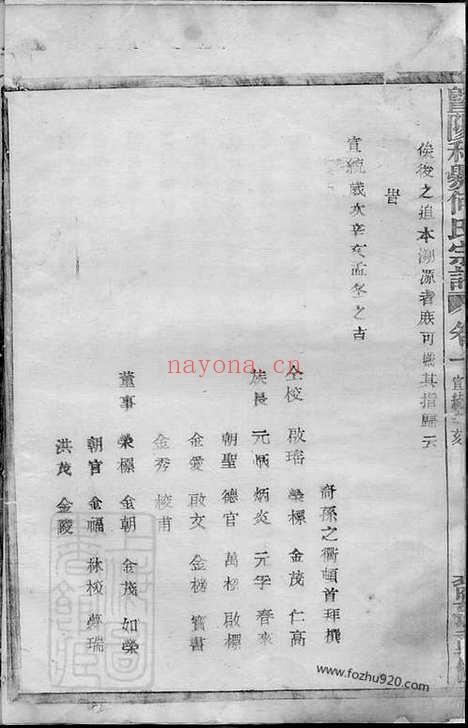 暨陽 何氏宗譜 卷一 宣統 刻
俟後之追本溯源者庶可識其指歸云
旹
宣統歲次辛亥孟冬之吉
裔孫之衢頓首拜撰
仝校 啟瑤 榮標 金茂 仁高
族長 元炳 炳炎 元孚 春來
朝聖 德官 萬 啟標
金愛 啟文 金 寶書
金秀 校甫
董事 榮標 金朝 金茂 如榮
朝官 金福 林校 夢瑞
洪茂 金陵
nayona.cn
www.fozhu920.com